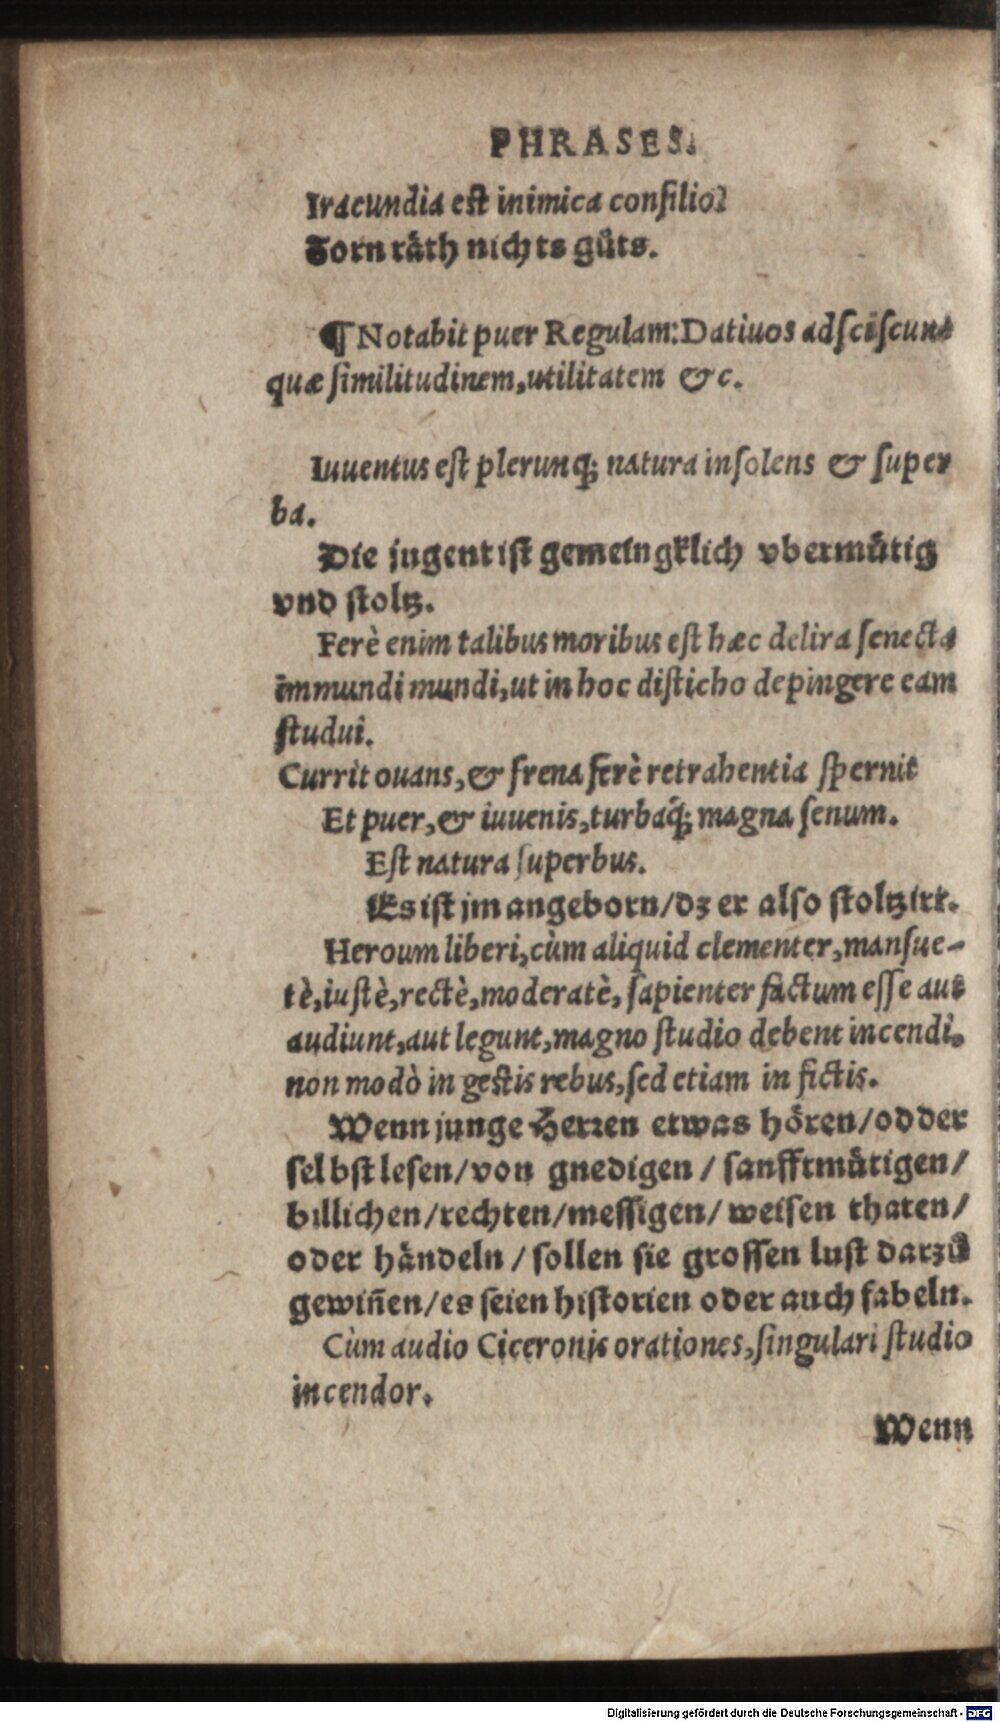 PHRASES.
Iracundia est inimica consilio.
Zorn råth nichts gůts.
¶ Notabit puer Regulam: Datiuos adsciscunt
quæ similitudinem, utilitatem &c.
Iuuentus est plerunq; natura insolens & super
ba.
Die jugent ist gemeingklich vbermůtig
vnd stoltz.
Ferè enim talibus moribus est hæc delira senecta
immundi mundi, ut in hoc disticho depingere eam
studui.
Currit ouans, & frena ferè retrahentia spernit
Et puer, & iuuenis, turbaq́; magna senum.
Est natura superbus.
Es ist jm angeborn/dz er also stoltzirt.
Heroum liberi, cùm aliquid clementer, mansue-
tè, iustè, rectè, moderatè, sapienter factum esse aut
audiunt, aut legunt, magno studio debent incendi,
non modò in gestis rebus, sed etiam in fictis.
Wenn junge Herren etwas hören/odder
selbst lesen/von gnedigen/sanfftmůtigen/
billichen/rechten/messigen/weisen thaten/
oder håndeln/sollen sie grossen lust darzů
gewiñen/es seien historien oder auch fabeln.
Cùm audio Ciceronis orationes, singulari studio
incendor.
Wenn
Digitalisierung gefördert durch die Deutsche Forschungsgemeinschaft - DFG